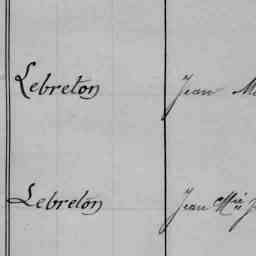 Lebreton Jean
Lebreton Jean Mie